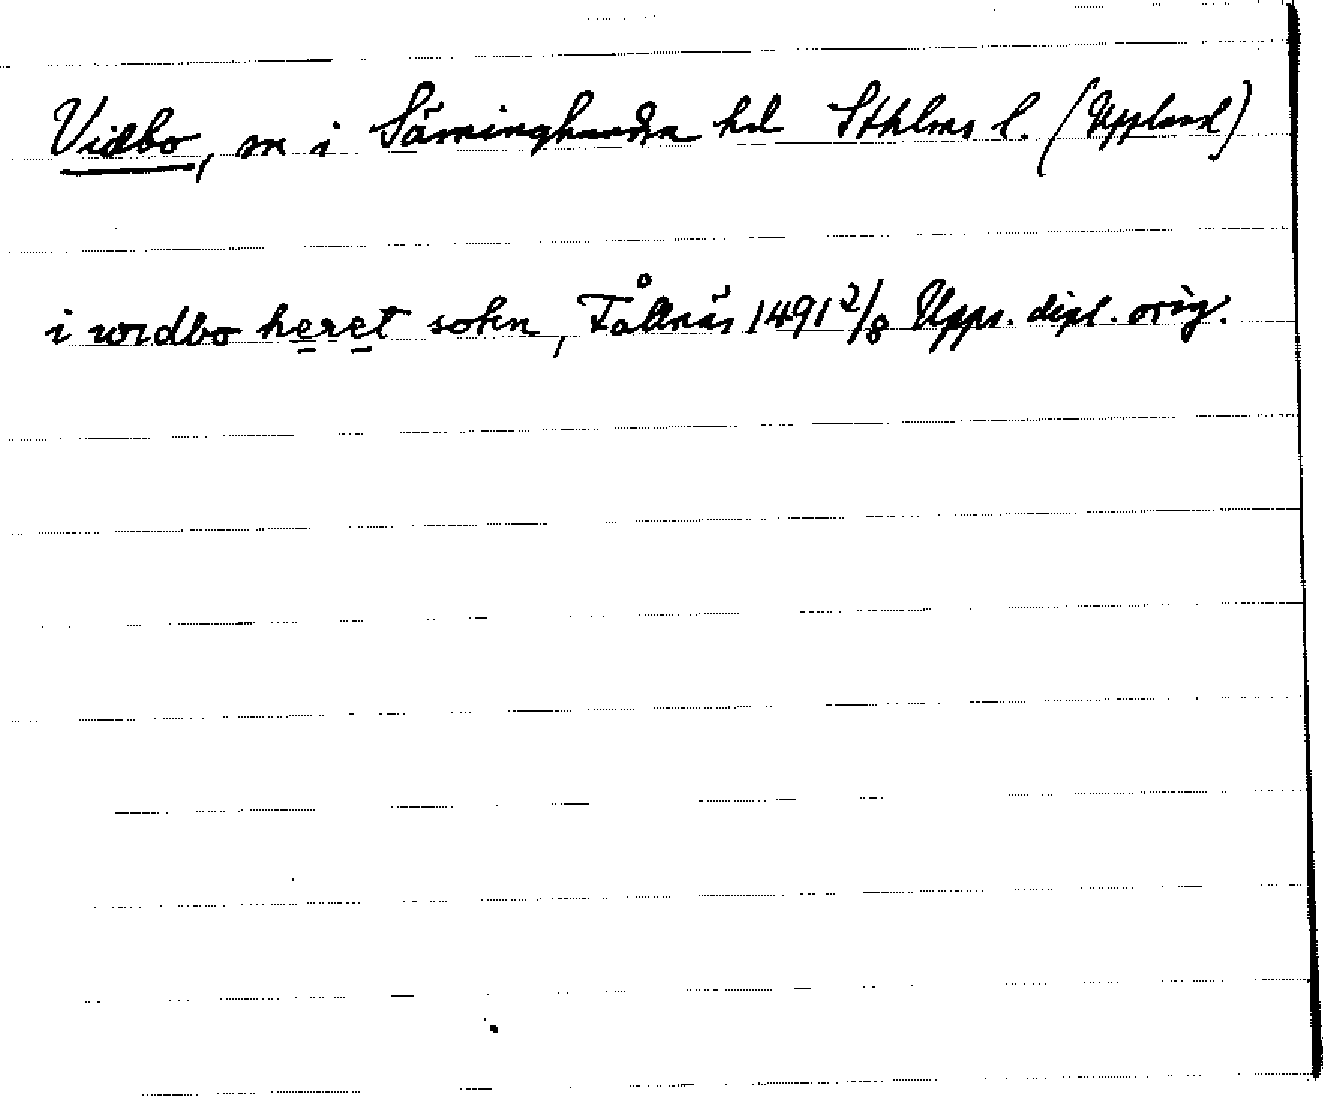 Vidbo, sn i Särminghundra hd Sthlms l. (Uppland)
i wıdbo heret sokn, Fållnäs 1491 2/8 Upps. dipl. orig.